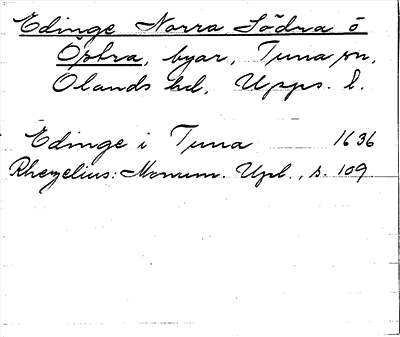 Edinge Norra Södra o
Östra, byar, Tuna sn,
Olands hd, Upps. l.
Edinge i Tuna 1636
Rhezelius: Monum. Upl., s. 109